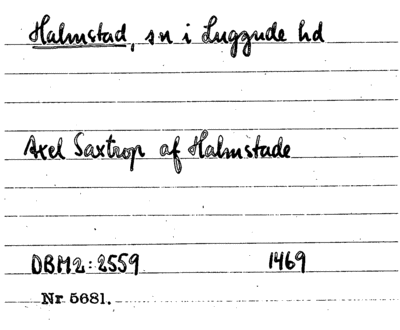 Halmstad, sn i Luggude hd
Axel Saxtrop af Halmstade
DBM2:2559 1469
Nr 5681.